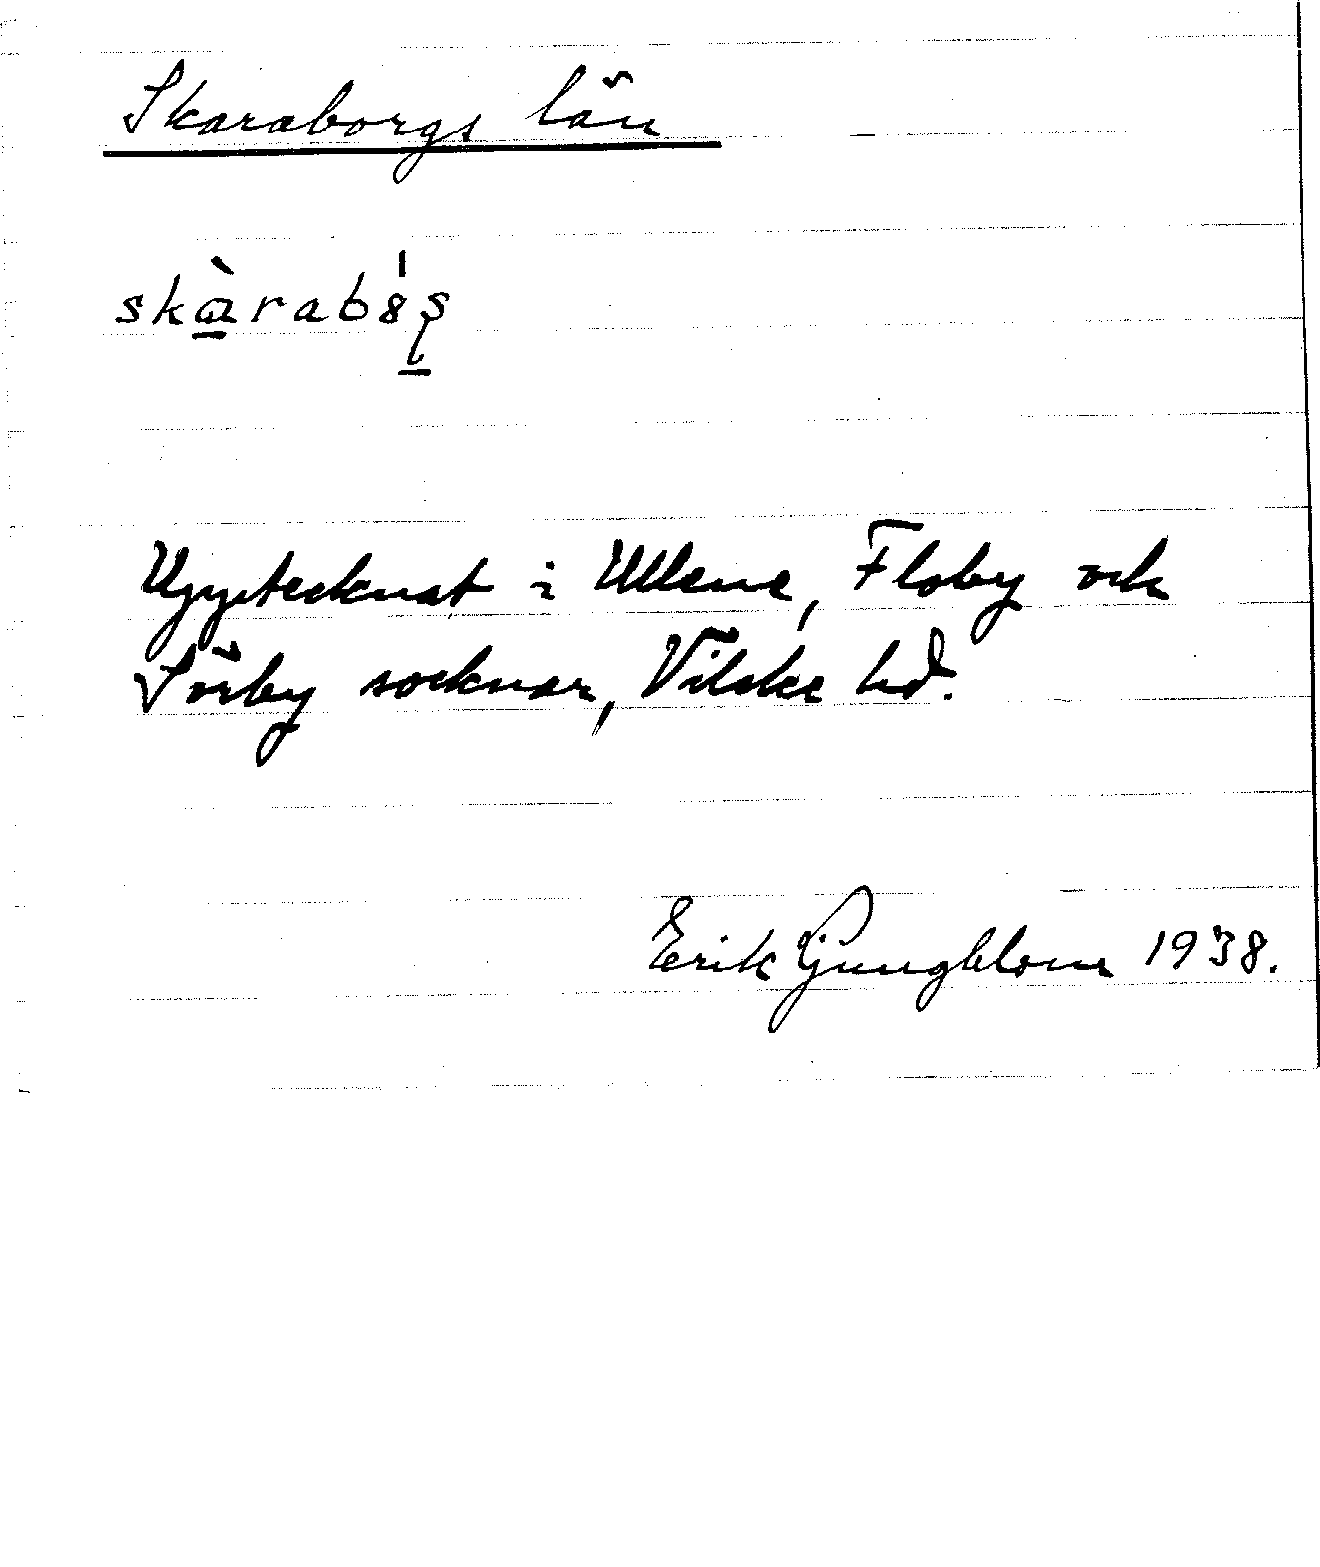 Skaraborgs län
skàrab8̍ʂ
Upptecknat i Ullene, Floby och
Sörby socknar, Vilske hd.
Erik Ljungblom 1938.